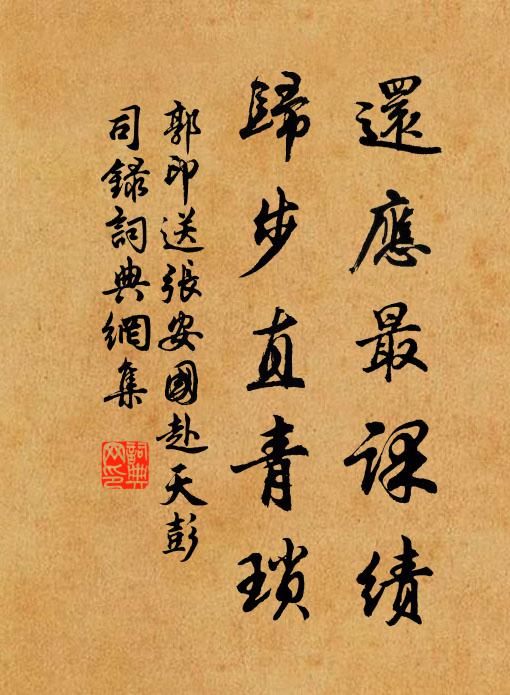 還應最課績
歸步直青瑣
郭印送張安國赴天彭
司錄詞典網集
詞典网印